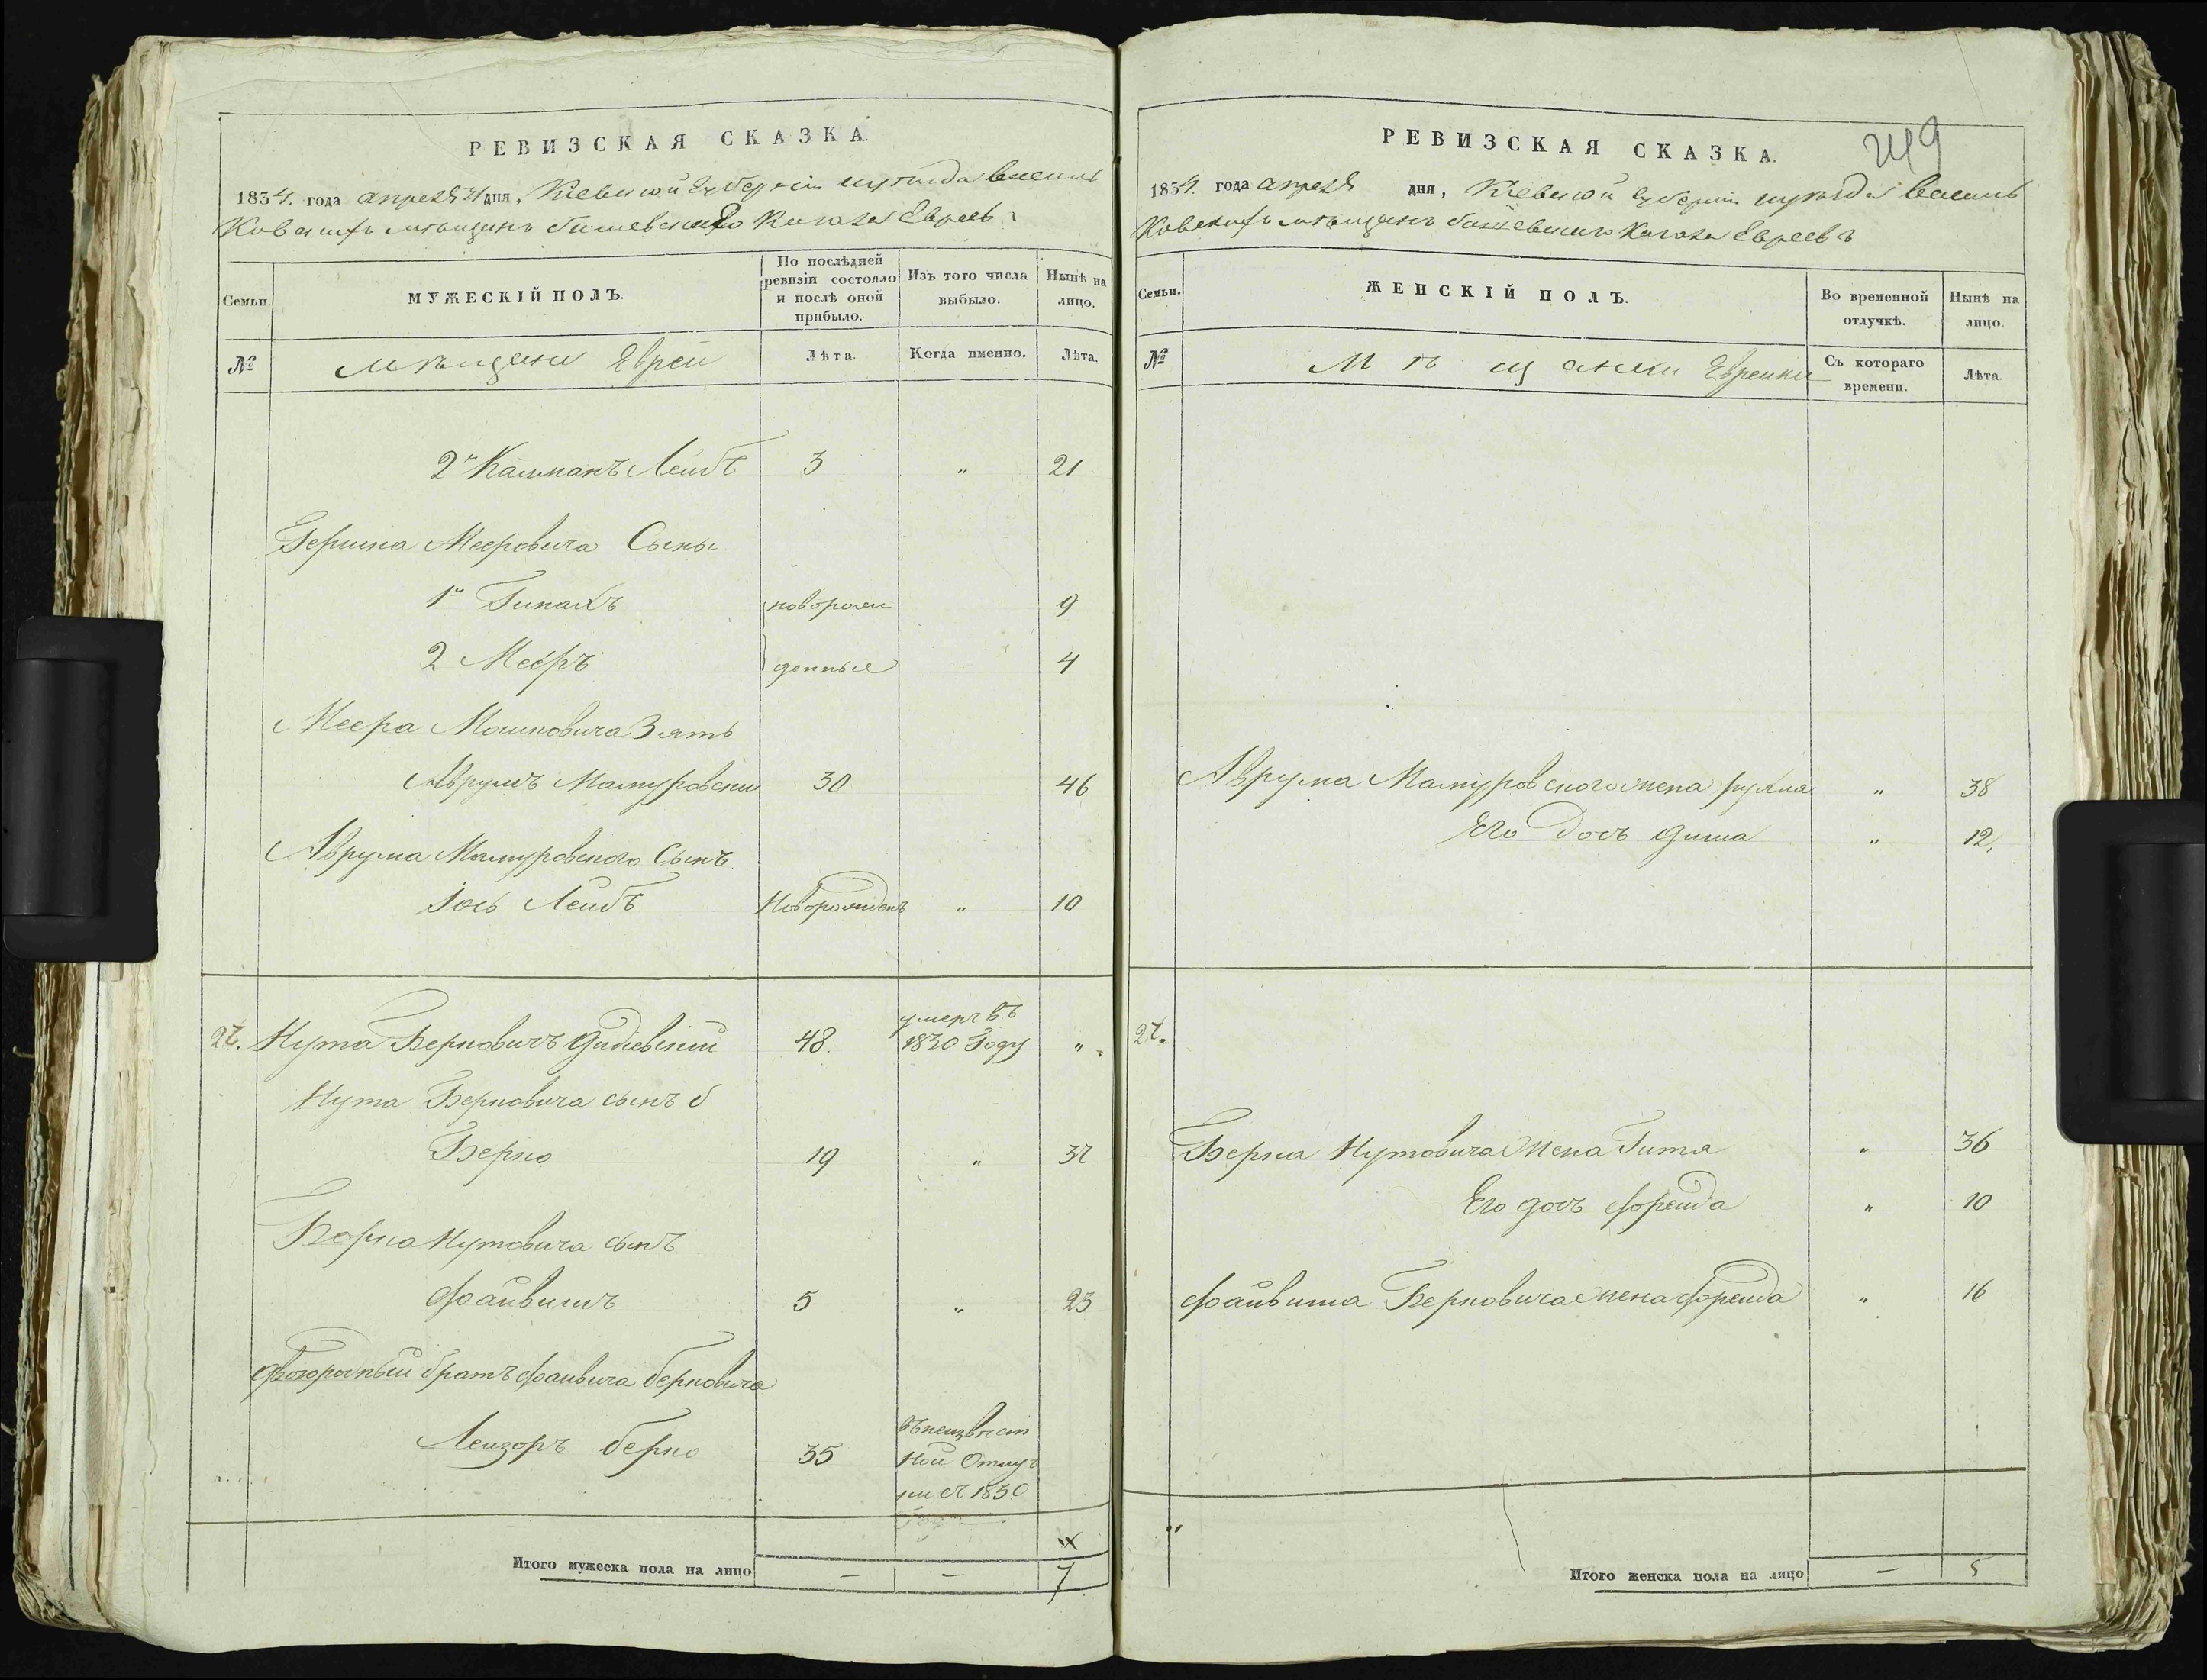 РЕВИЗСКАЯ СКАЗКА.
1834. года апреля дня, Кіевской Губерніи иуезда Василь
Ковскихъ мѣщанъ Кагала Евреевъ
Семьи.
МУЖЕСКІЙ ПОЛЪ.
По послѣдней ревизіи состояло и послѣ оной прибыло.
Изъ того числа выбыло.
Нынѣ на лицо.
№
мѣщани Евреи
Лѣта.
Когда именно.
Лѣта.
2й Калманъ Лейбъ 3 " 21
Гершка Мееровича Сыны
1й новорож 9
2 Мееръ денные 4
Меера Мошковича Зять
Аврумъ Мазуровски 30 46
Аврума Мазуровского Сынъ
Іось Лейбъ Новорожденъ " 10
умеръ въ
27. Нута Берковичъ 48. 1830 Году "
Нута Берковича сынъ
Берко 19 " 37
Берка Нутовича сынъ
Файвишъ 5 " 23
Двоюродный братъ Файвиша берковича
въ неизвѣст
Лейзоръ берко 35 ной Отлуч
ки съ 1830
Итого мужеска пола на лицо — — 7
РЕВИЗСКАЯ СКАЗКА.
249
1834. года апреля дня, Кіевской Губерніи иуезда Василь
Ковскихъ мѣщанъ Кагала Евреевъ
Семьи.
ЖЕНСКІЙ ПОЛЪ.
Во временной отлучкѣ.
Нынѣ на лицо.
№
Мѣщанки Еврейки
Съ котораго времени.
Лѣта.
Аврума Мазуровского жена рухля " 38
Его дочь " 12.
27.
Берка Нутовича жена Гитля " 36
Его дочь Фрейда " 10
Файвиша Берковича жена Фрейда " 16
"
Итого женска пола на лицо — 5